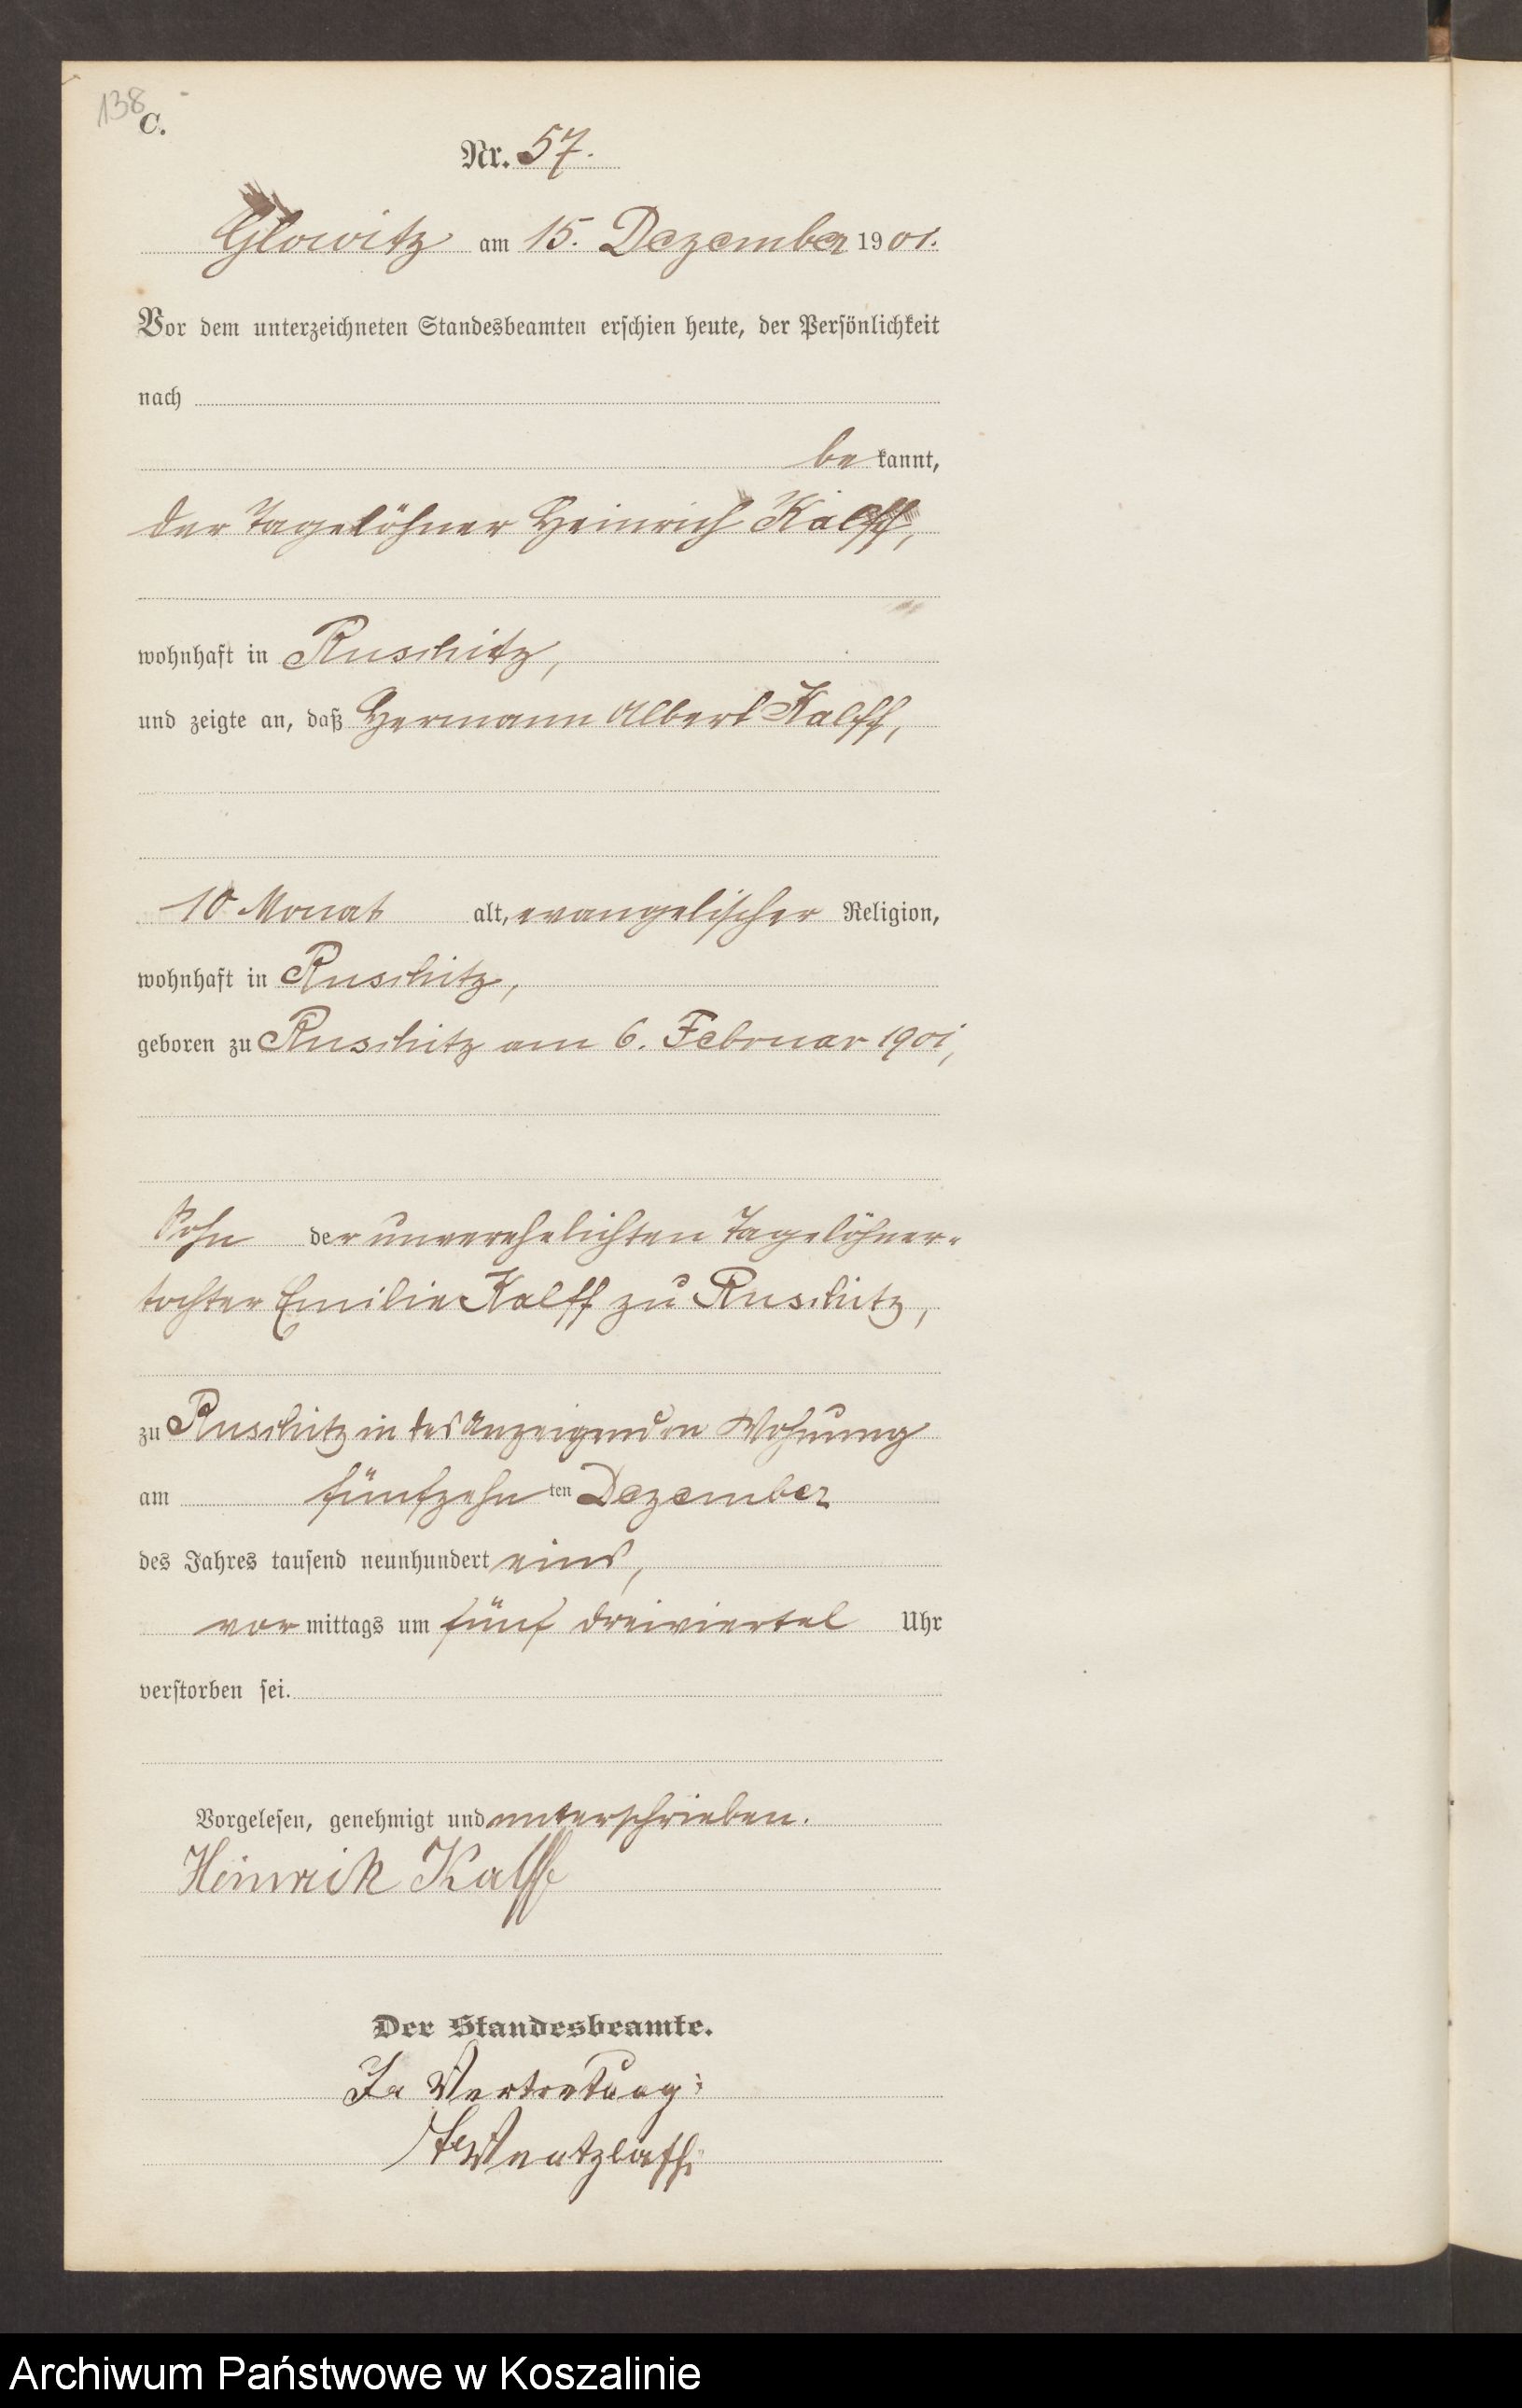 138
C.
Nr. 57.
Glowitz am 15. Dezember 1901.
Vor dem unterzeichneten Standesbeamten erschien heute, der Persönlichkeit
nach
be kannt,
der Tagelöhner Heinrich Kalff,
wohnhaft in Ruschitz,
und zeigte an, daß Hermann Albert Kalff,
10 Monat alt, evangelischer Religion,
wohnhaft in Ruschitz,
geboren zu Ruschitz am 6. Februar 1901,
Sohn der unverehelichten Tagelöhner-
tochter Emilie Kalff zu Ruschitz,
zu Ruschitz in des Anzeigenden Wohnung
am fünfzehn ten Dezember
des Jahres tausend neunhundert eins,
vor mittags um fünf dreiviertel Uhr
verstorben sei.
Vorgelesen, genehmigt und unterschrieben.
Heinrich Kalff
Der Standesbeamte.
In Vertretung:
Wentzlaff
Archiwum Państwowe w Koszalinie